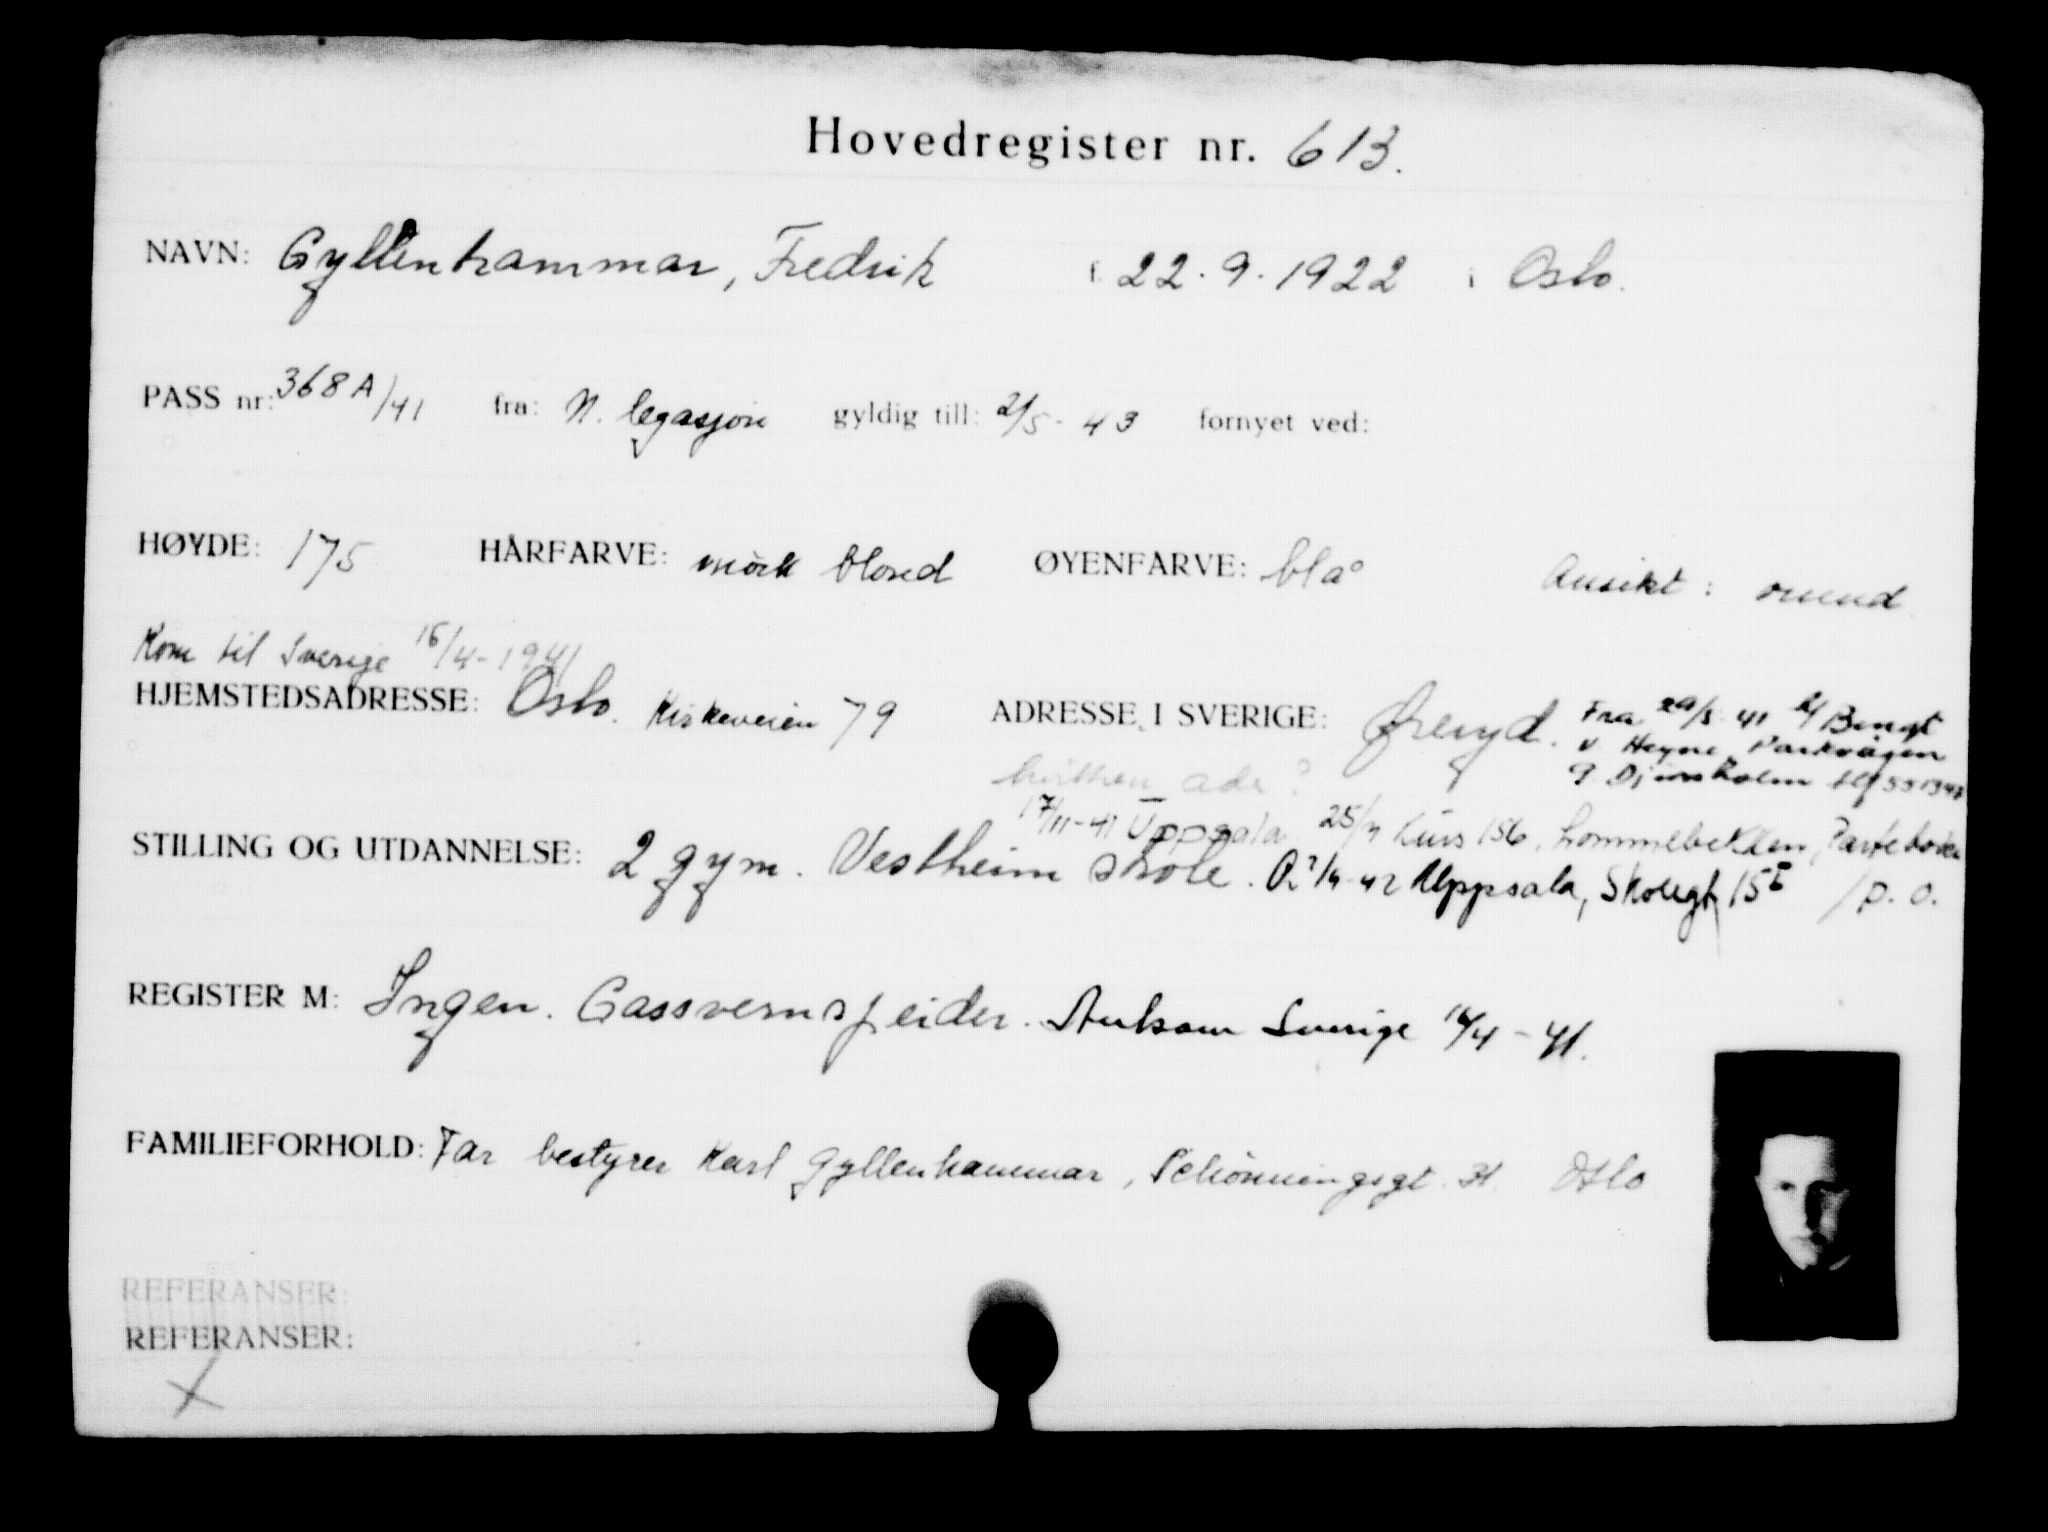 Hovedregister nr. 613.
NAVN: Gyllenhammar, Fredrik f. 22.9.1922 i Oslo.
PASS nr: 368A/41 fra: N. legasjon gyldig till: 2/5-43 fornyet ved:
HØYDE: 175 HÅRFARVE: mörk blond ØYENFARVE: blå Ansikt: rund
Kom til Sverige 16/4-1941
HJEMSTEDSADRESSE: Oslo. Kirkeveien 79 ADRESSE I SVERIGE: Öreryd. Fra 29/5 41 Bengt
v. Heyne Parkvägen
9 Djursholm tlf 551947
hvilken adr?
17/11-41 Uppsala 25/4 Kurs 156, Lommebekken, Parteboda
STILLING OG UTDANNELSE: 2 gym. Vestheim skole. 7/4-42 Uppsala, Skolegt 15 I /p.o.
REGISTER M: Ingen. Gassvernspeider. Ankom Sverige 16/4-41.
FAMILIEFORHOLD: Far bestyrer Karl Gyllenhammar, Schönningsgt. 31 Oslo
REFERANSER:
REFERANSER:
X